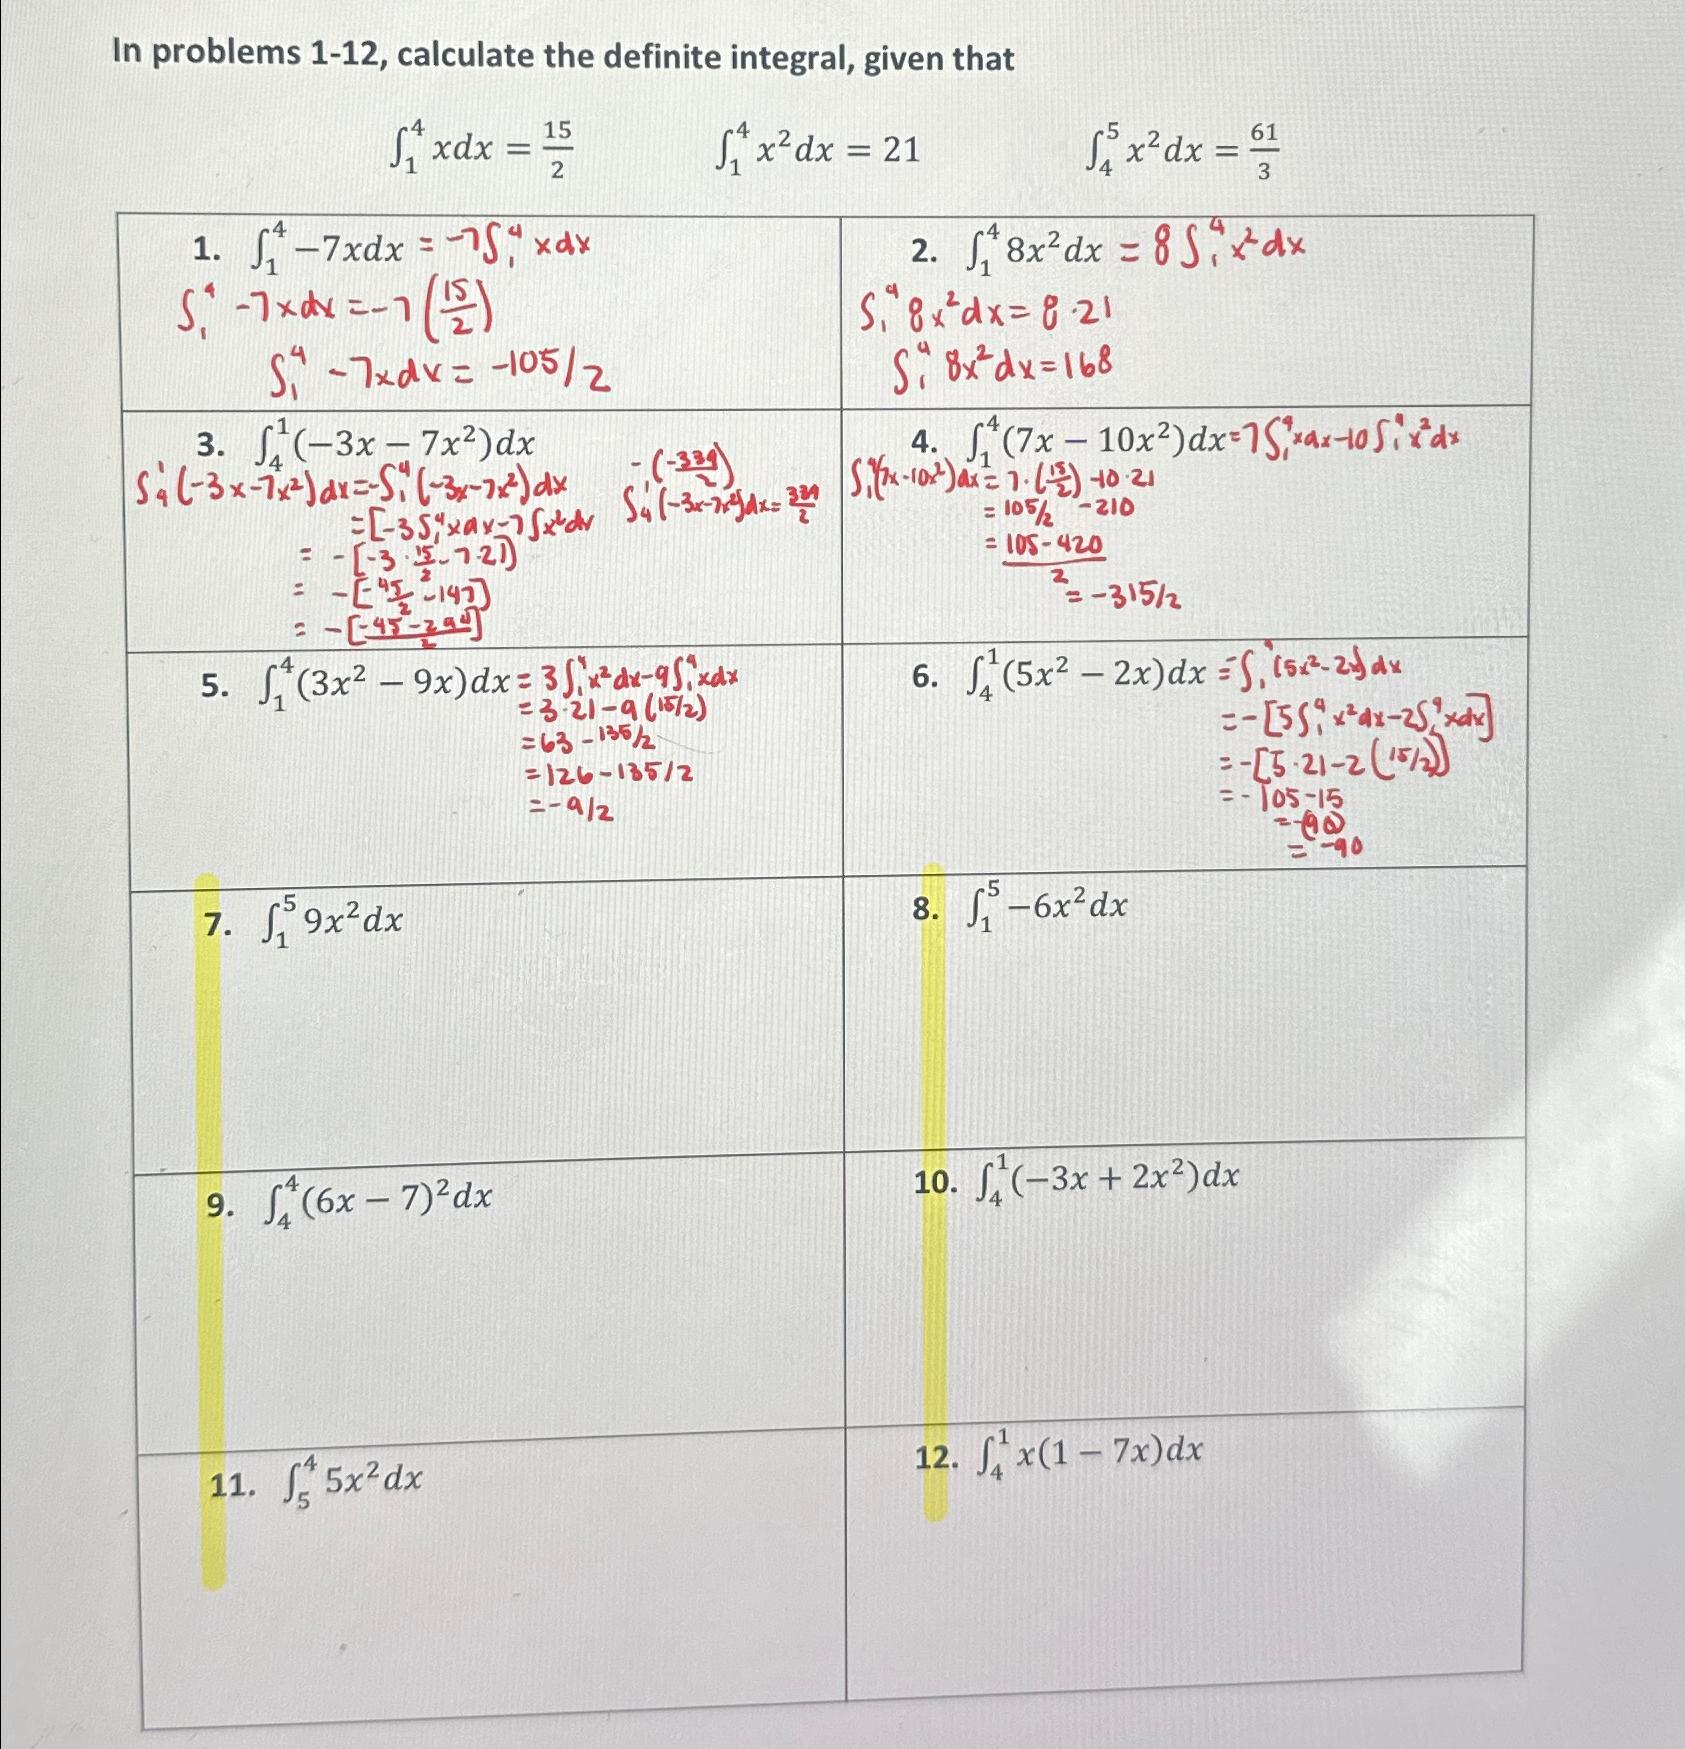 In problems 1-12, calculate the definite integral, given that
∫₁⁴ xdx = 15/2    ∫₁⁴ x²dx = 21    ∫₄⁵ x²dx = 61/3
1. ∫₁⁴ −7xdx = -7∫₁⁴ xdx
∫₁⁴ -7xdx = -7(15/2)
∫₁⁴ -7xdx = -105/2
2. ∫₁⁴ 8x²dx = 8∫₁⁴ x²dx
∫₁⁴ 8x²dx = 8·21
∫₁⁴ 8x²dx = 168
3. ∫₄¹(−3x − 7x²)dx
∫₄¹(-3x-7x²)dx = -∫₁⁴(-3x-7x²)dx
= [-3∫₁⁴xdx-7∫x²dx
= -[-3·15/2-7·21]
= -[-45/2-147]
= -[-45-294/2]
-(-339/2)
∫₄¹(-3x-7x²)dx = 339/2
4. ∫₁⁴(7x − 10x²)dx = 7∫₁⁴xdx-10∫₁⁴x²dx
∫₁⁴(7x-10x²)dx = 7·(15/2)-10·21
= 105/2 -210
= 105-420/2
= -315/2
5. ∫₁⁴(3x² − 9x)dx = 3∫₁⁴x²dx-9∫₁⁴xdx
= 3·21-9(15/2)
= 63-135/2
= 126-135/2
= -9/2
6. ∫₄¹(5x² − 2x)dx = -∫₁⁴(5x²-2x)dx
= -[5∫₁⁴x²dx-2∫₁⁴xdx]
= -[5·21-2(15/2)]
= -105-15
= -(90)
= -90
7. ∫₁⁵ 9x²dx
8. ∫₁⁵ −6x²dx
9. ∫₄⁴(6x − 7)²dx
10. ∫₄¹(−3x + 2x²)dx
11. ∫₅⁴ 5x²dx
12. ∫₄¹ x(1 − 7x)dx